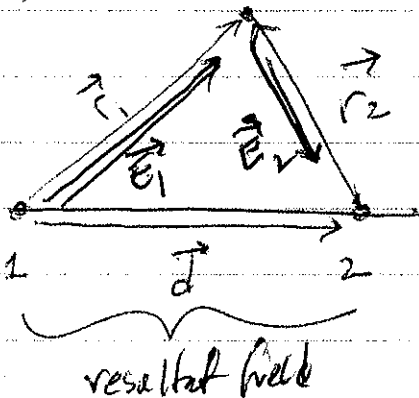 r₁
r₂
E₁
E₂
1
2
d
resultat field